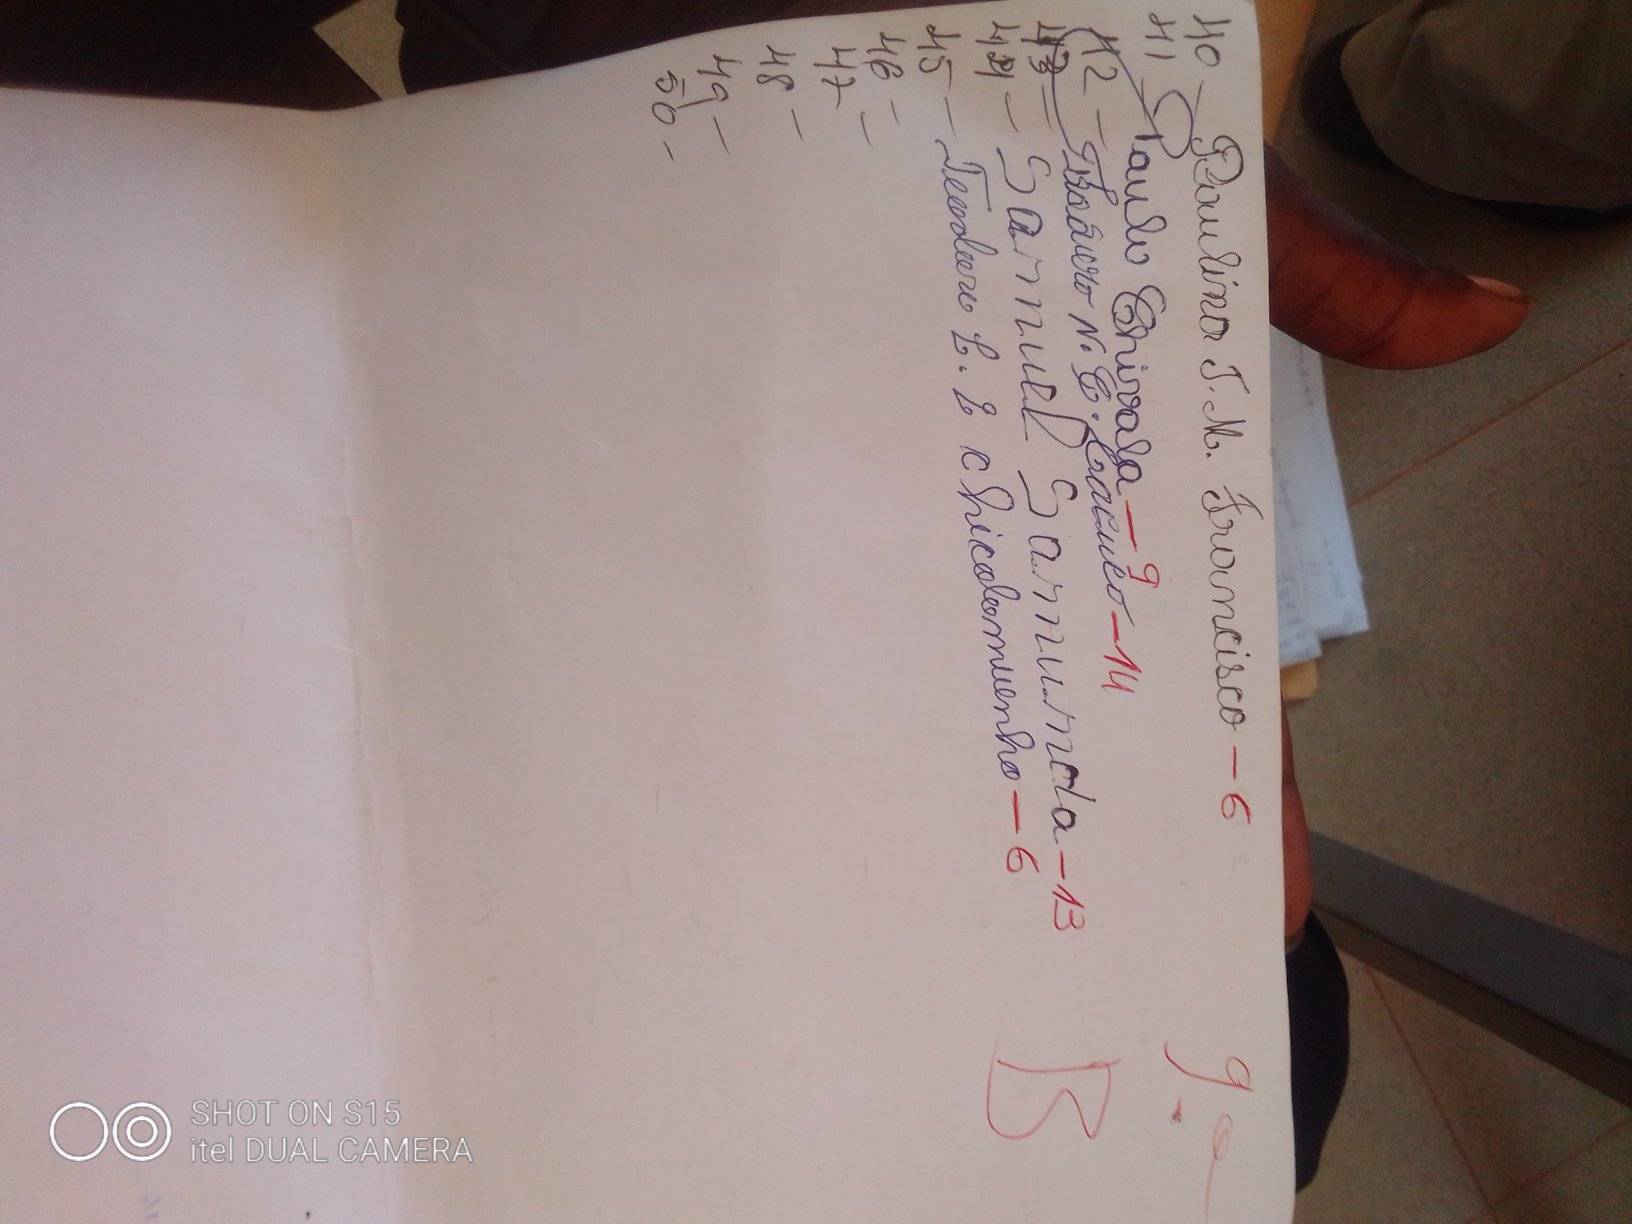 40 - Paulina J. M. Francisco - 6
9.a
41 Paulo Chivala - 9
42 - N. C. Cacuco - 14
43 - Samuel Samununda - 13
B
44 - Teodoro L. E Chicolomuenho - 6
45 -
46 -
47 -
48 -
49 -
50 -
SHOT ON S15
itel DUAL CAMERA